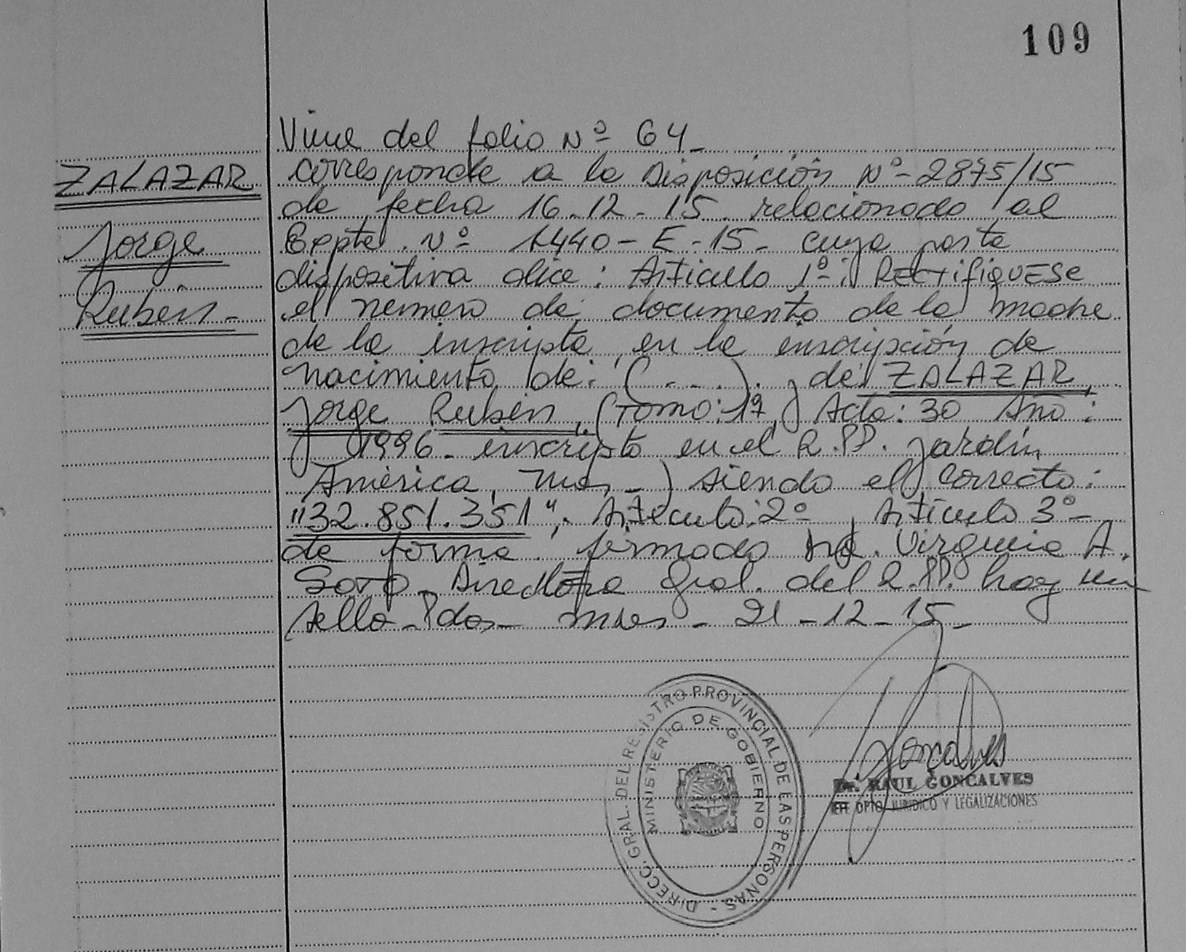 109
Viene del folio Nº 64-
ZALAZAR
Jorge
Rubén-
corresponde a la Disposición Nº-2875/15
de fecha 16-12-15 relacionado al
Expte. Nº 1440-E-15- cuya parte
dispositiva dice: Artículo 1º: RECTIFIQUESE
el número de documento de la madre
de la inscripta en la inscripción de
nacimiento de: (...) de ZALAZAR,
Jorge Rubén, (Tomo: 1º, Acta: 30 Año:
1996- inscripto en el R.PP. Jardín
América, Mnes-) siendo el correcto:
"32.851.351". Artículo: 2º Artículo 3º-
de forma firmado Virginia A.
Soto Directora Gral. del R.PP. hay un
sello- Pdas- Mnes- 21-12-15-
DIRECC. GRAL. DEL REGISTRO PROVINCIAL DE LAS PERSONAS -
MINISTERIO DE GOBIERNO
Goncalves
Dr. RAUL GONCALVES
JEFE DPTO. JURIDICO Y LEGALIZACIONES